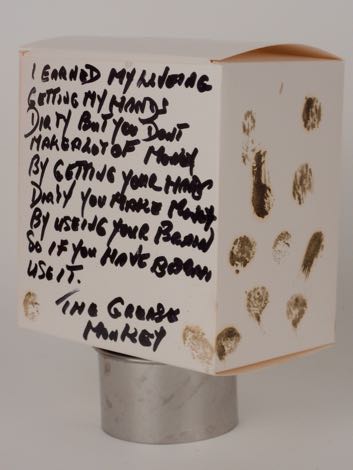 I EARNED MY LIVEING
GETTING MY HANDS
DIRTY BUT YOU DONT
MAKE A LOT OF MONEY
BY GETTING YOUR HANDS
DIRTY YOU MAKE MONEY
BY USEING YOUR BRAIN
SO IF YOU HAVE BRAIN
USE IT.
THE GREASE
MONKEY